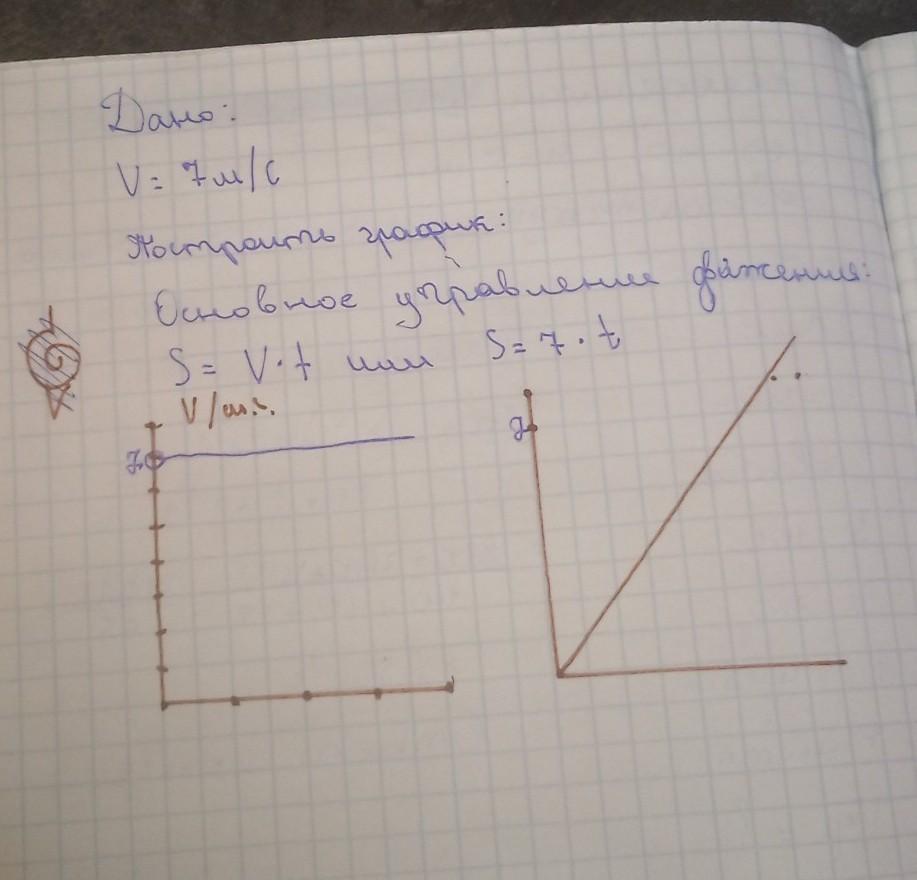 Дано:
V = 7 м/с
Построить график:
Основное управление движения:
S = V·t или S = 7·t
V/м.с.
7
7